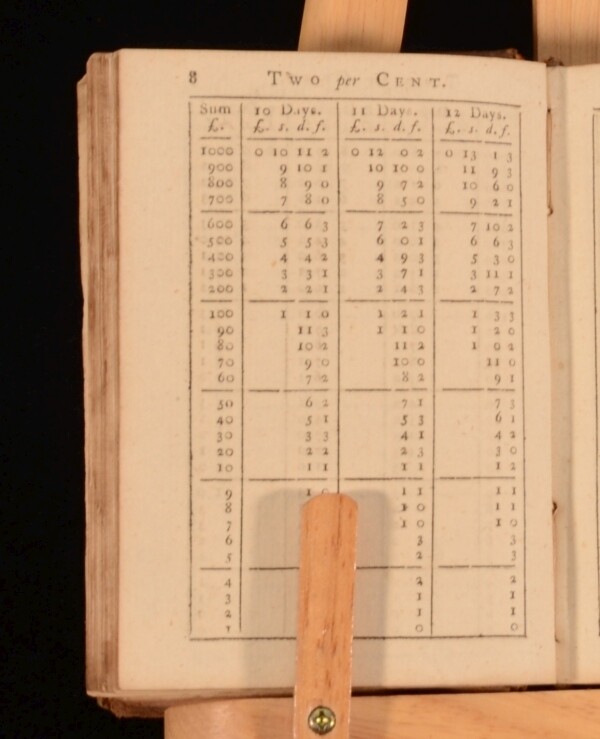 8 TWO per CENT.
Sum 10 Days. 11 Days. 12 Days.
£. £. s. d. f. £. s. d. f. £. s. d. f.
1000 0 10 11 2 0 12 0 2 0 13 1 3
900 9 10 1 10 10 0 11 9 3
800 8 9 0 9 7 2 10 6 0
700 7 8 0 8 5 0 9 2 1
600 6 6 3 7 2 3 7 10 2
500 5 5 3 6 0 1 6 6 3
400 4 4 2 4 9 3 5 3 0
300 3 3 1 3 7 1 3 11 1
200 2 2 1 2 4 3 2 7 2
100 1 1 0 1 2 1 1 3 3
90 11 3 1 1 0 1 2 0
80 10 2 11 2 1 0 2
70 9 0 10 0 11 0
60 7 2 8 2 9 1
50 6 2 7 1 7 3
40 5 1 5 3 6 1
30 3 3 4 1 4 2
20 2 2 2 3 3 0
10 1 1 1 1 1 2
9 1 1 1 1 1
8 1 0 1 1
7 1 0 1 0
6 3 3
5 2 3
4 2 2
3 1 1
2 1 1
1 0 0